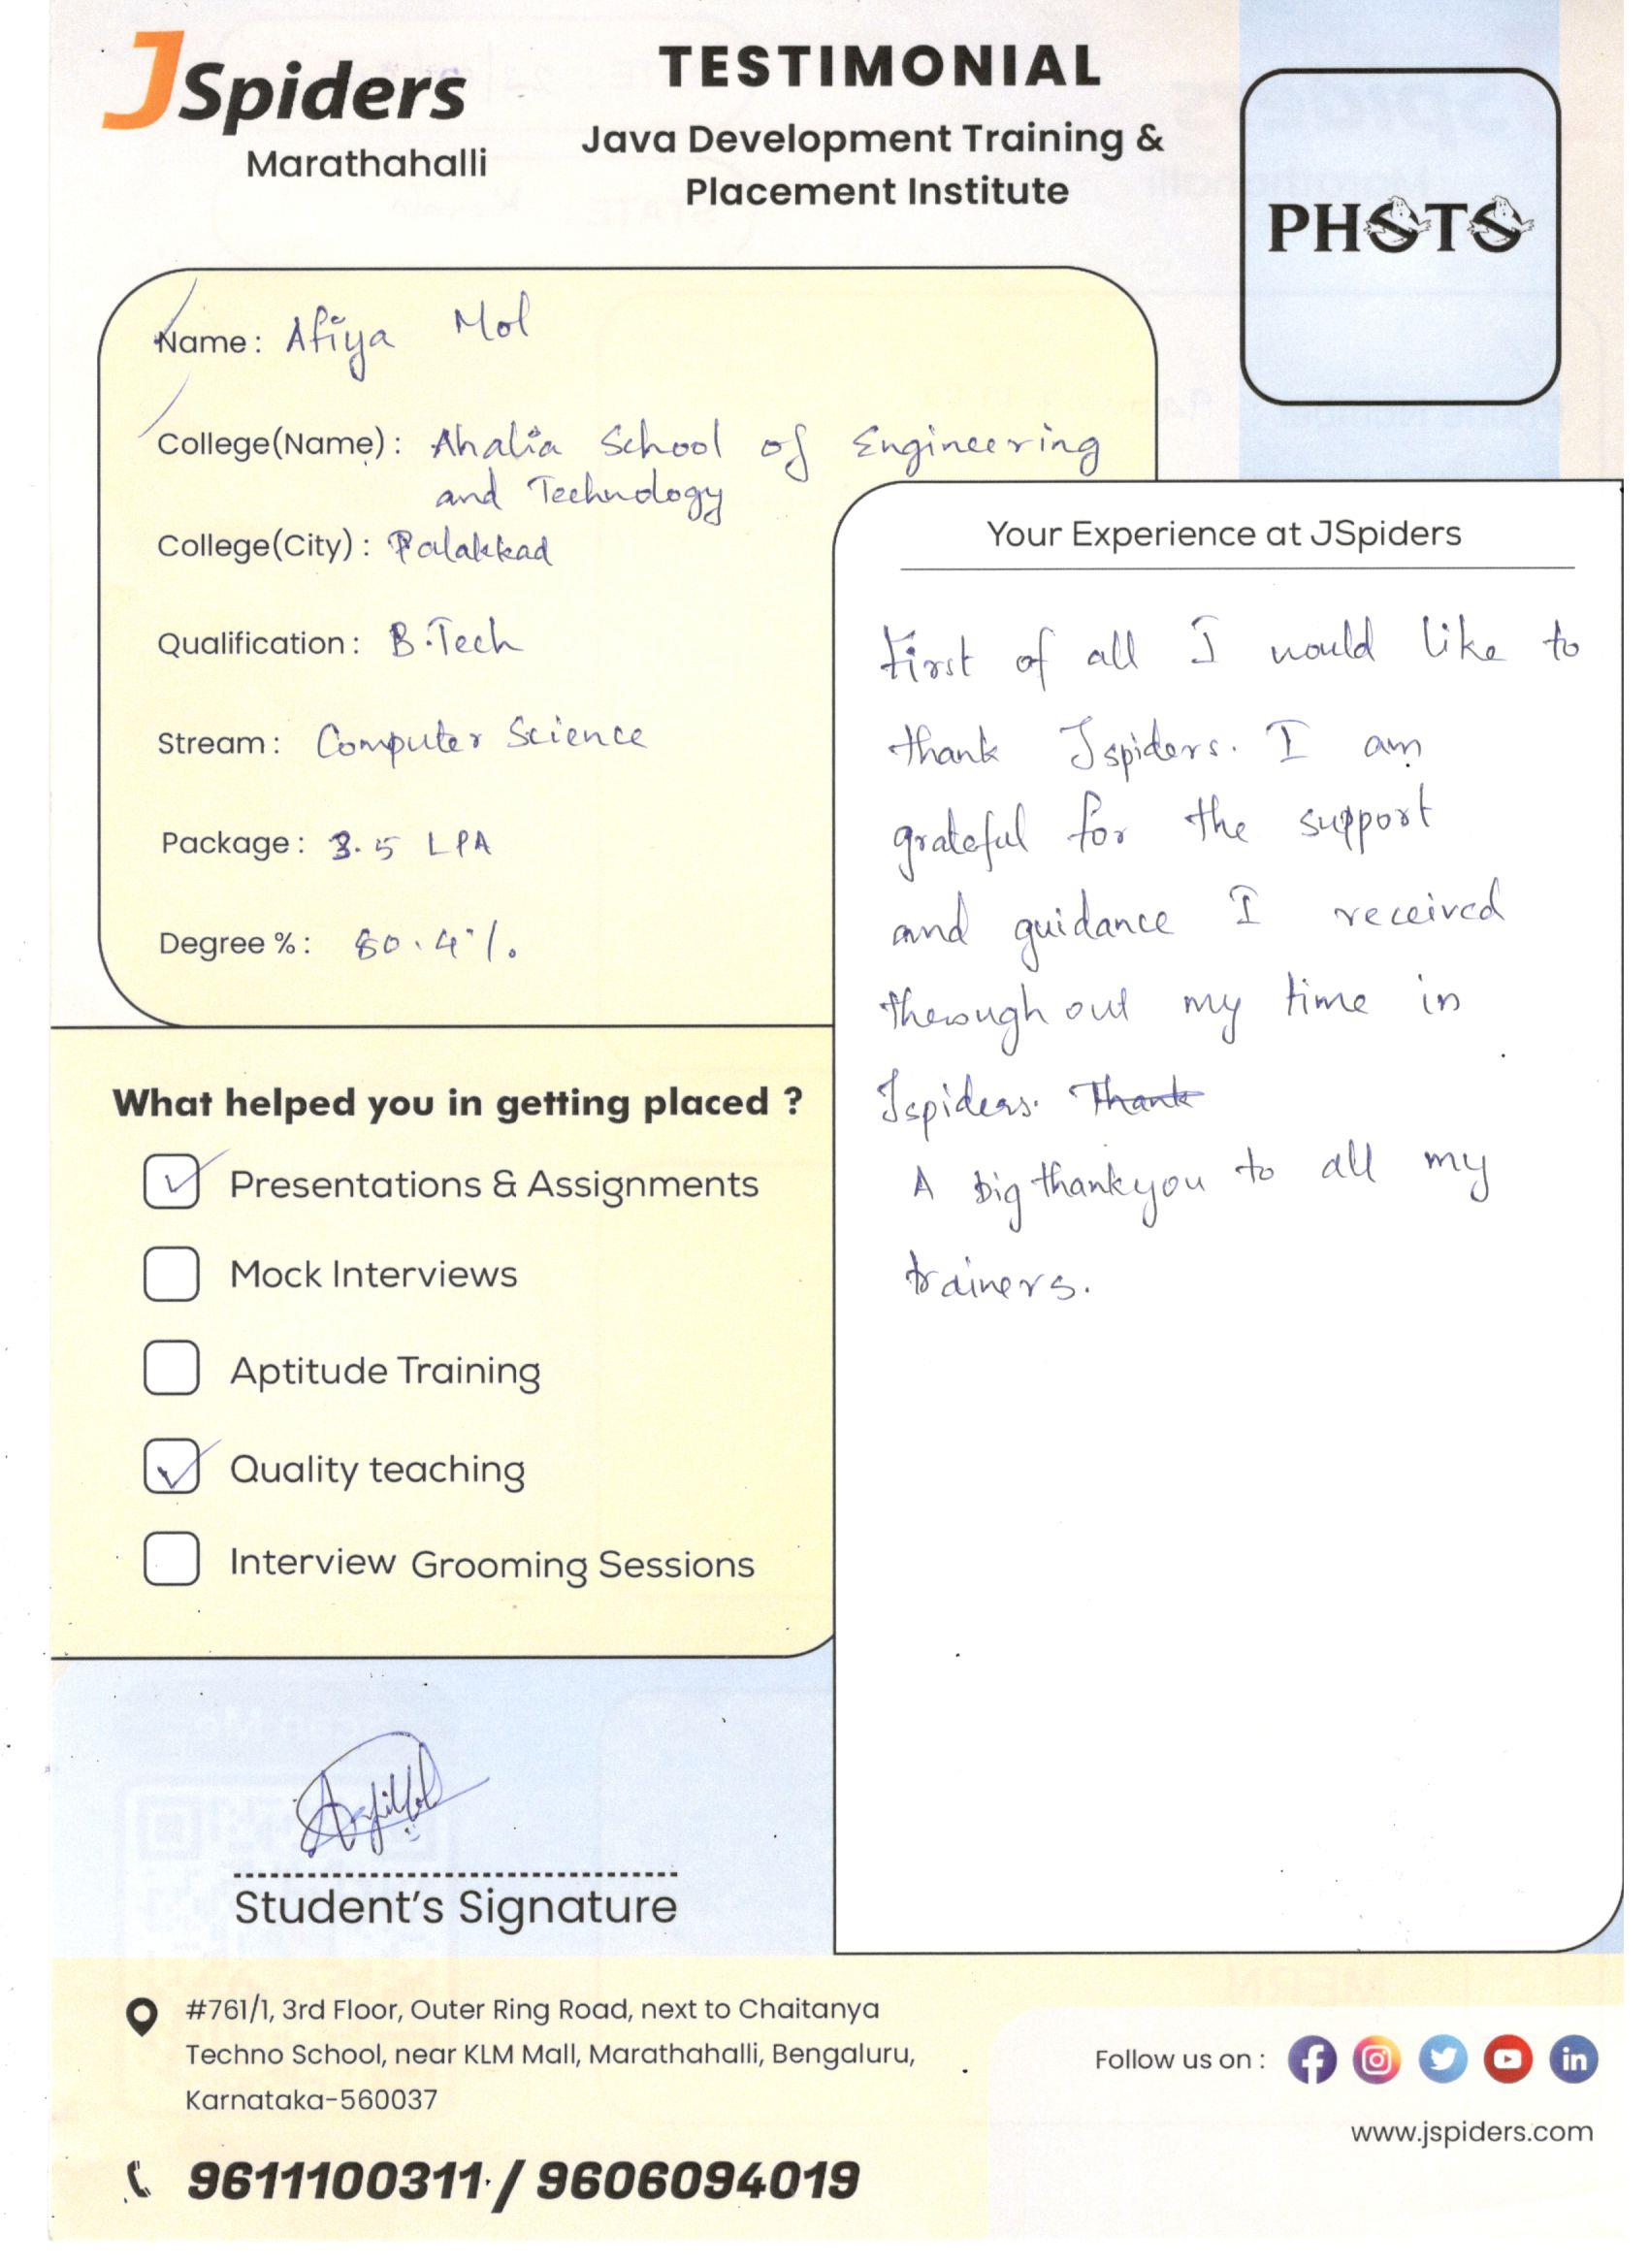 JSpiders
Marathahalli
TESTIMONIAL
Java Development Training &
Placement Institute
PHOTO
Name: Afiya Mol
College(Name): Ahalia School of Engineering
and Technology
College(City): Palakkad
Qualification: B.Tech
Stream: Computer Science
Package: 3.5 LPA
Degree %: 80.4%
What helped you in getting placed ?
Presentations & Assignments
Mock Interviews
Aptitude Training
Quality teaching
Interview Grooming Sessions
Your Experience at JSpiders
First of all I would like to
thank Jspiders. I am
grateful for the support
and guidance I received
therough out my time in
Jspiders. Thank
A big thankyou to all my
trainers.
Student's Signature
#761/1, 3rd Floor, Outer Ring Road, next to Chaitanya
Techno School, near KLM Mall, Marathahalli, Bengaluru,
Karnataka-560037
9611100311 / 9606094019
Follow us on :
www.jspiders.com